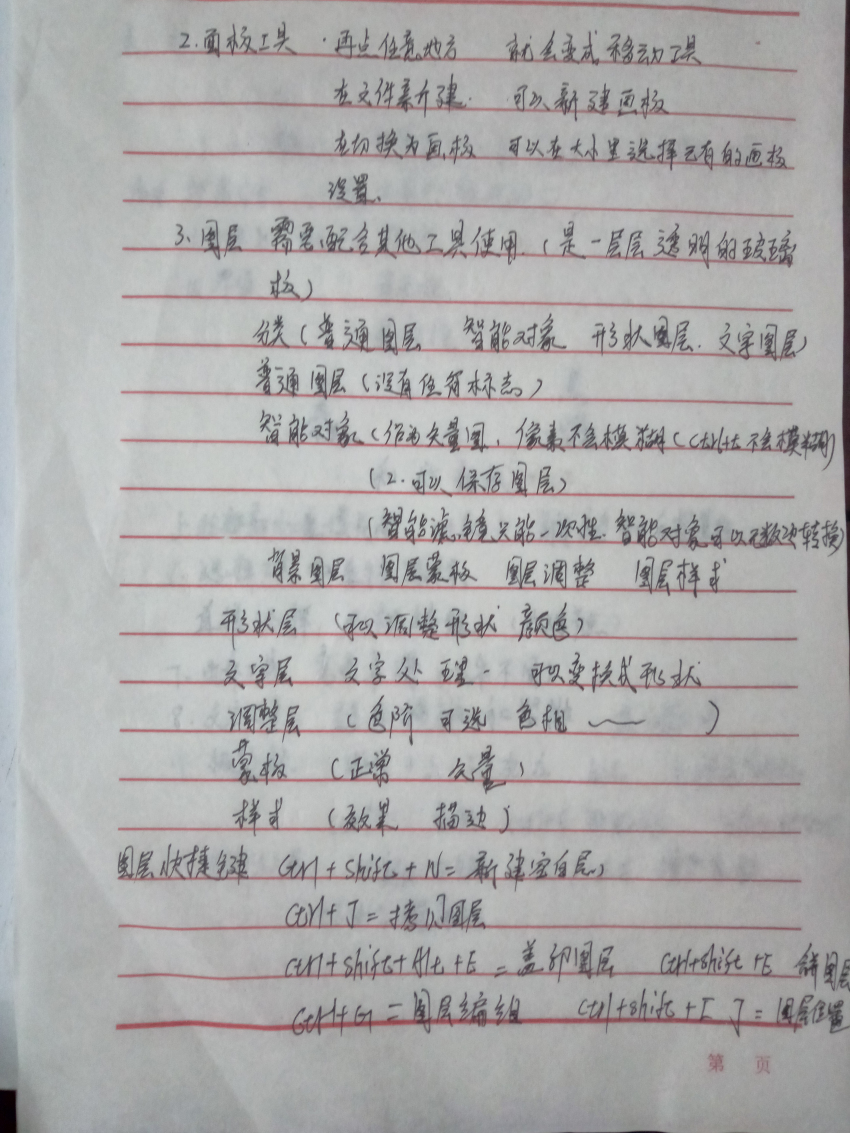 2.面板工具 ·再点任意地方 就会变成移动工具
在文件新建 可以新建画板
在切换为画板 可以在大小里选择已有的画板
设置、
3、图层 需要配合其他工具使用.(是一层层透明的玻璃
板)
分类(普通图层 智能对象 形状图层. 文字图层)
普通图层(没有任何标志。)
智能对象(作为矢量图, 像素不会模糊(Ctrl+t不会模糊)
(2.可以保存图层)
(智能滤镜只能一次性. 智能对象可以无数次转换)
背景图层 图层蒙板 图层调整 图层样式
形状层 (可以调整形状 颜色)
文字层 文字处理- 可以变换成形状
调整层 (色阶 可选 色相 )
蒙板 (正常 矢量)
样式 (效果 描边)
图层快捷键 Ctrl+Shift+N=新建空白层)
Ctrl+J=拷贝图层
Ctrl+shift+Alt+E=盖印图层 Ctrl+Shift+E 图层
Ctrl+G=图层编组 Ctrl+shift+[ ]=图层位置
第 页